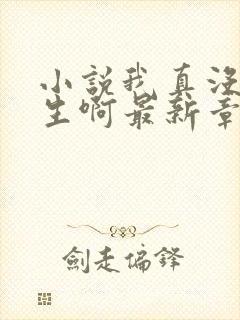 小說我真沒
生啊最新章
劍走偏鋒